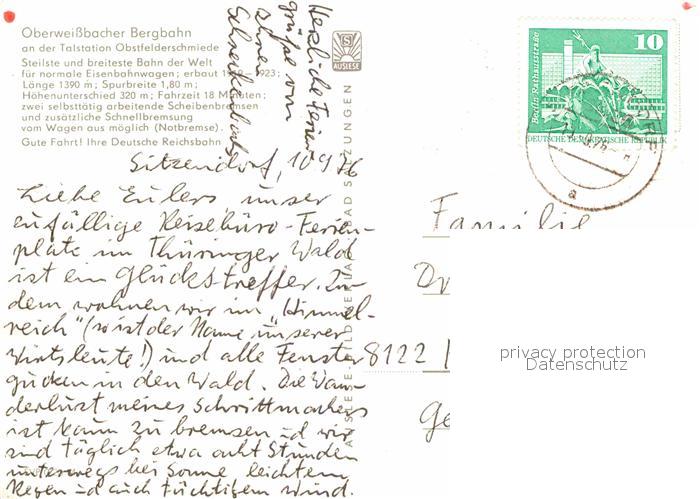 Oberweißbacher Bergbahn
an der Talstation Obstfelderschmiede
Steilste und breiteste Bahn der Welt
für normale Eisenbahnwagen; erbaut 1919–1923;
Länge 1390 m; Spurbreite 1,80 m;
Höhenunterschied 320 m; Fahrzeit 18 Minuten;
zwei selbsttätig arbeitende Scheibenbremsen
und zusätzliche Schnellbremsung
vom Wagen aus möglich (Notbremse).
Gute Fahrt! Ihre Deutsche Reichsbahn
Sitzendorf, 10 9 76
Liebe Eulers, unser
zufälliger Reisebüro-Ferien-
platz im Thüringer Wald
ist ein Glückstreffer. Zu-
dem wohnen wir im „Himmel-
reich“ (so ist der Name unserer
Wirtsleute!) und alle Fenster
gucken in den Wald. Die Wan-
derlust meines Schrittmachers
ist kaum zu bremsen und wir
sind täglich etwa acht Stunden
unterwegs bei Sonne leichtem
Regen und auch tüchtigem Wind.
Herzliche Ferien-
grüße von
Ihren
AUSLESE
Familie
8122
10
Berlin, Rathausstraße
DEUTSCHE DEMOKRATISCHE REPUBLIK
a
privacy protection
Datenschutz